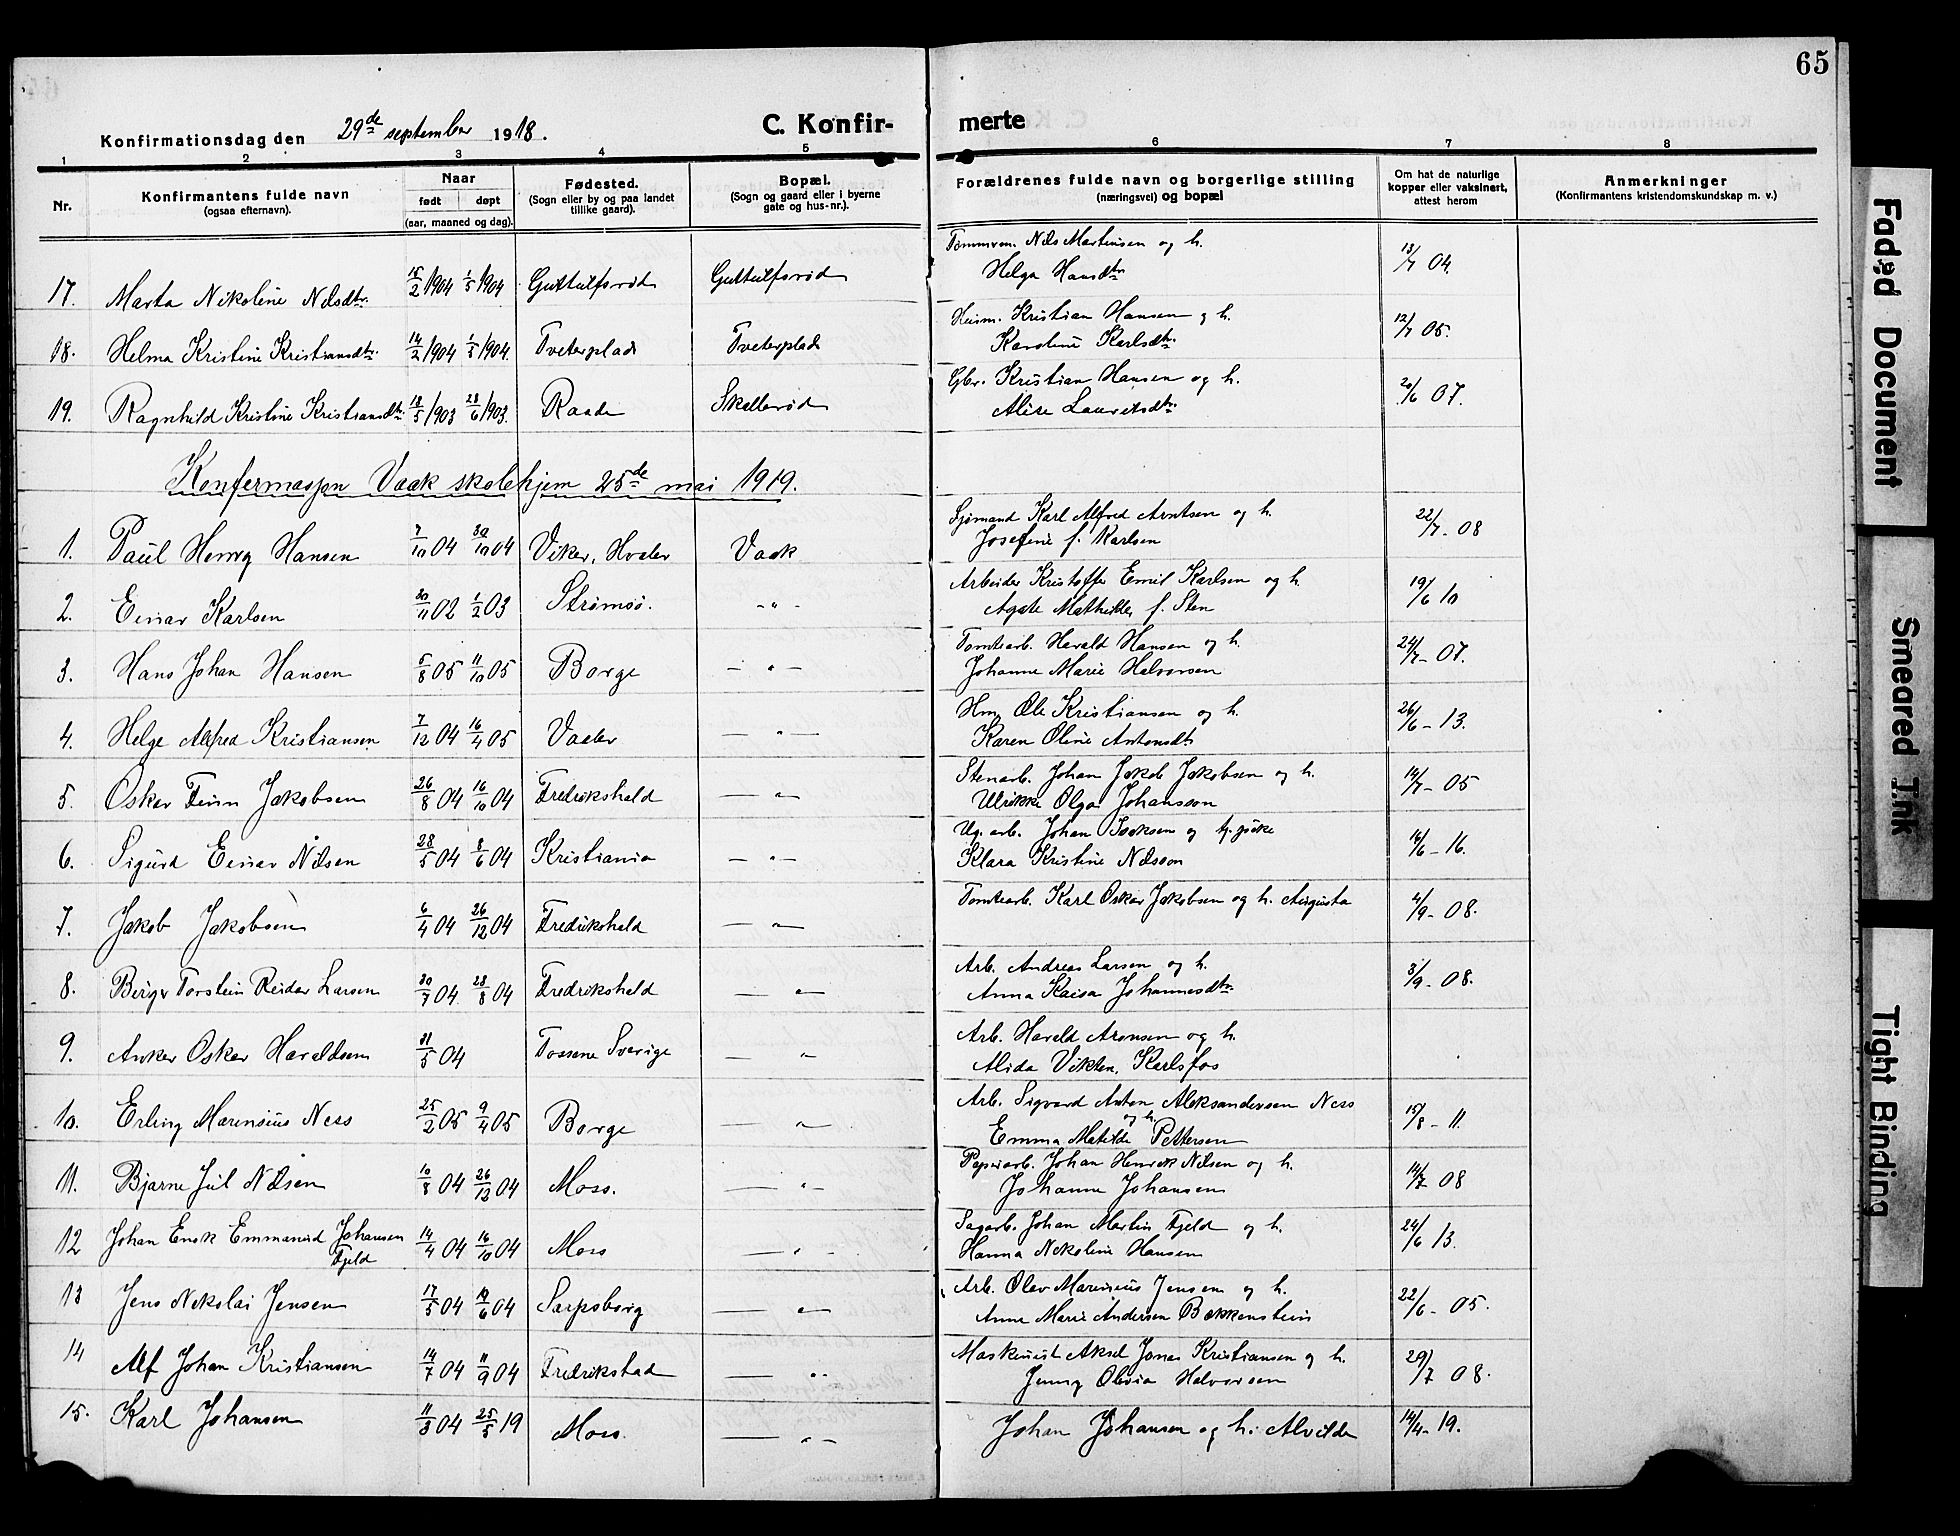 65
Konfirmationsdag den 29de september 1918.
C. Konfirmerte
1 2 3 4 5 6 7 8
Nr.
Konfirmantens fulde navn
(ogsaa efternavn).
Naar
født døpt
(aar, maaned og dag).
Fødested.
(Sogn eller by og paa landet
tillike gaard).
Bopæl.
(Sogn og gaard eller i byerne
gate og hus-nr.).
Forældrenes fulde navn og borgerlige stilling
(næringsvei) og bopæl
Om hat de naturlige
kopper eller vaksinert,
attest herom
Anmerkninger
(Konfirmantens kristendomskundskap m. v.)
17. Marta Nikoline Nilsdtr. 15/2 1904 1/5 1904 Guttulfsrød Guttulfsrød Tømmerm. Nils Martinsen og h. 13/7 04.
Helga Hansdtr
18. Helma Kristine Kristiansdtr. 14/2 1904 1/5 1904. Tveterplads Tveterplads Husm. Kristian Hansen og h. 12/7 05.
Karoline Karlsdtr.
19. Ragnhild Kristine Kristiansdtr. 18/5 1903 28/6 1903. Raade Skallerød Gbr. Kristian Hansen og h. 20/6 07.
Alise Lauritsdtr.
Konfermasjon Vaak skolehjem 25de mai 1919.
1. Paul Henry Hansen 7/10 04 30/10 04 Viker, Hvaler Vaak Sjømand Karl Alfred Arntsen og h. 22/7 - 08
Josefine f. Karlsen
2. Einar Karlsen 20/11 02 1/2 03 Strømsø. - " - Arbeider Kristoffer Emil Karlsen og h. 19/6 10
Agate Mathilde f. Sten
3. Hans Johan Hansen 5/8 05 11/10 05 Borge - " - Tomtearb. Harald Hansen og h. 24/7 - 07.
Johanne Marie Halvorsen
4. Helge Alfred Kristiansen 7/12 04 16/4 05 Vaaler - " - Hm. Ole Kristiansen og h. 26/6 - 13.
Karen Oline Antonsdtr
5. Oskar Finn Jakobsen 26/8 04 16/10 04 Fredrikshald - " - Stenarb. Johan Jakob Jakobsen og h. 14/7 - 05
Ulrikke Olga Johansson
6. Sigurd Einar Nilsen 28/5 04 8/6 04 Kristiania - " - Ug. arb. Johan Isaksen og 16/6 - 16.
Klara Kristine Nilsson
7. Jakob Jakobsen 6/4 04 26/12 04 Fredrikshald - " - Tomtearb. Karl Oskar Jakobsen og h. Augusta 4/9 - 08.
8. Birger Torstein Reidar Larsen 30/7 04. 28/8 04 Fredrikshald - " - Arb. Andreas Larsen og h. 3/9 - 08.
Anna Kaisa Johannesdtr.
9. Anker Oskar Haraldsen 31/5 04 Tossene Sverige - " - Arb. Harald Aronsen og h.
Alida Karlsfos
10. Erling Marensius Ness 25/2 05 9/4 05 Borge - " - Arb. Sigvard Anton Aleksandersen Ness 15/8 - 11.
og h.
Emma Matilde Pettersen
11. Bjarne Jul Nilsen 10/8 04 26/12 04 Moss. - " - Papirarb. Johan Henrik Nilsen og h. 14/7 08
Johanne Johansen
12 Johan Enok Emmanuel Johansen 14/4 04 16/10 04 Moss - " - Sagarb. Johan Martin Fjeld og h. 24/6 13.
Fjeld Hanna Nikoline Hansen
13 Jens Nikolai Jensen 17/5 04 19/6 04 Sarpsborg - " - Arb. Olav Marinius Jensen og h. 22/6 - 05.
Anne Marie Andersen Bakkenstein
14 Alf Johan Kristiansen 14/7 04 11/9 04 Fredrikstad - " - Maskinist Aksel Jonas Kristiansen og h. 29/7 08.
Jenny Olivia Halvorsen
15. Karl Johansen 11/3 04 25/5 19 Moss. - " - Johan Johansen og h. Alvilde 14/4 - 19.
Faded Document
Smeared Ink
Tight Binding